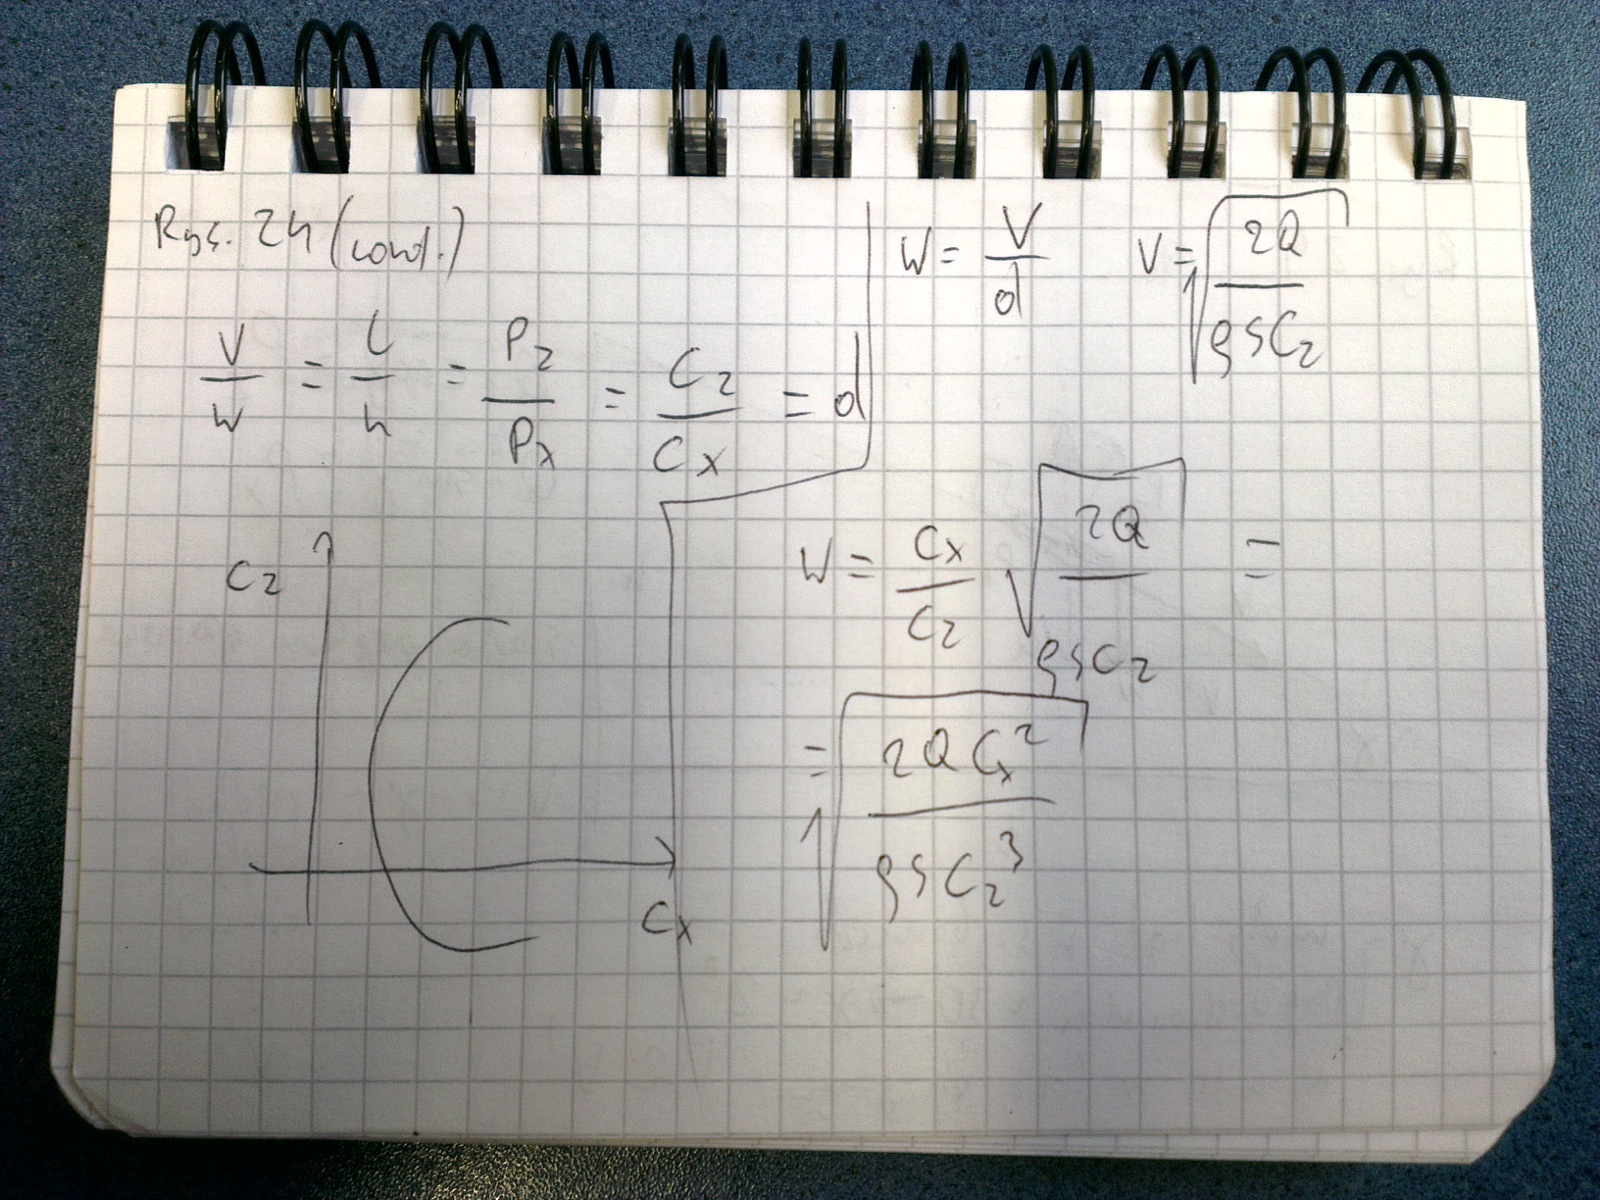 Rys. 24 (cont.)
V/W = L/h = Pz/Px = Cz/Cx = d
Cz
Cx
W = V/d V = √(2Q/ρSCz)
W = Cx/Cz √(2Q/ρSCz) =
= √(2QCx²/ρSCz³)